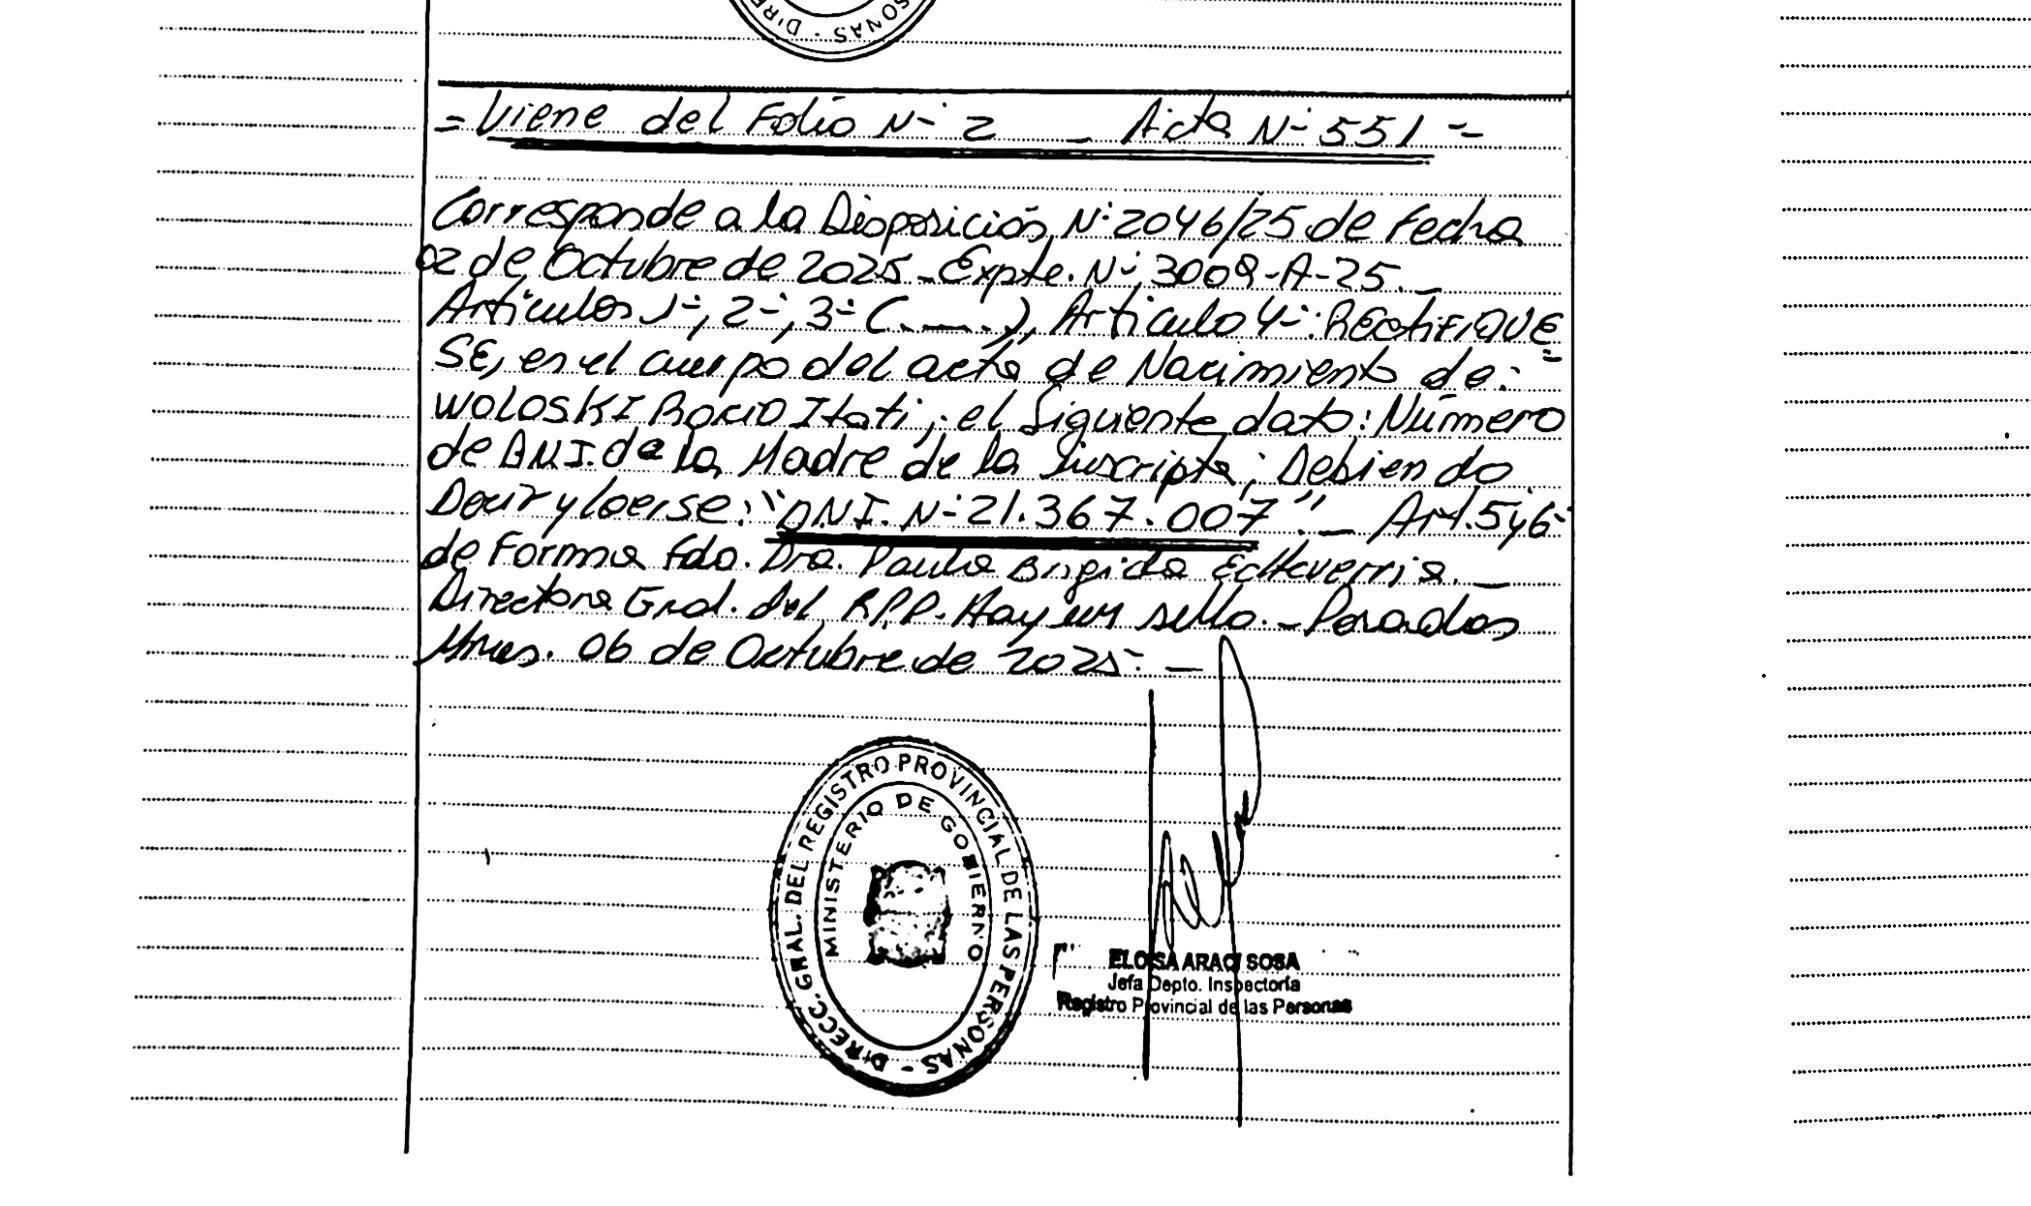 PERSONAS - DIRE
= Viene del Folio N- 2 - Acta N- 551 =
Corresponde a la Disposición N° 2046/25 de Fecha
02 de Octubre de 2025 - Expte. N° 3009-A-25. -
Artículos 1-, 2-, 3- (. __ .), Artículo 4-: RECtiFiQUE=
SE, en el cuerpo del acta de Nacimiento de:
WOLOSKI ROCIO Itati, el Siguiente dato: Número
de D.N.I. de la Madre de la Inscripta; Debiendo
Decir y leerse: "D.N.I. N- 21.367.007". - Art. 5y6-
de Forma Fdo. Dra. Paula Brigida Echeverria. -
Directora Gral. del R.P.P. Hay un sello. - Posadas
Mnes. 06 de Octubre de 2025. -
DIRECC. GRAL. DEL REGISTRO PROVINCIAL DE LAS PERSONAS -
MINISTERIO DE GOBIERNO
ELOISA ARACI SOSA
Jefa Depto. Inspectoría
Registro Provincial de las Personas